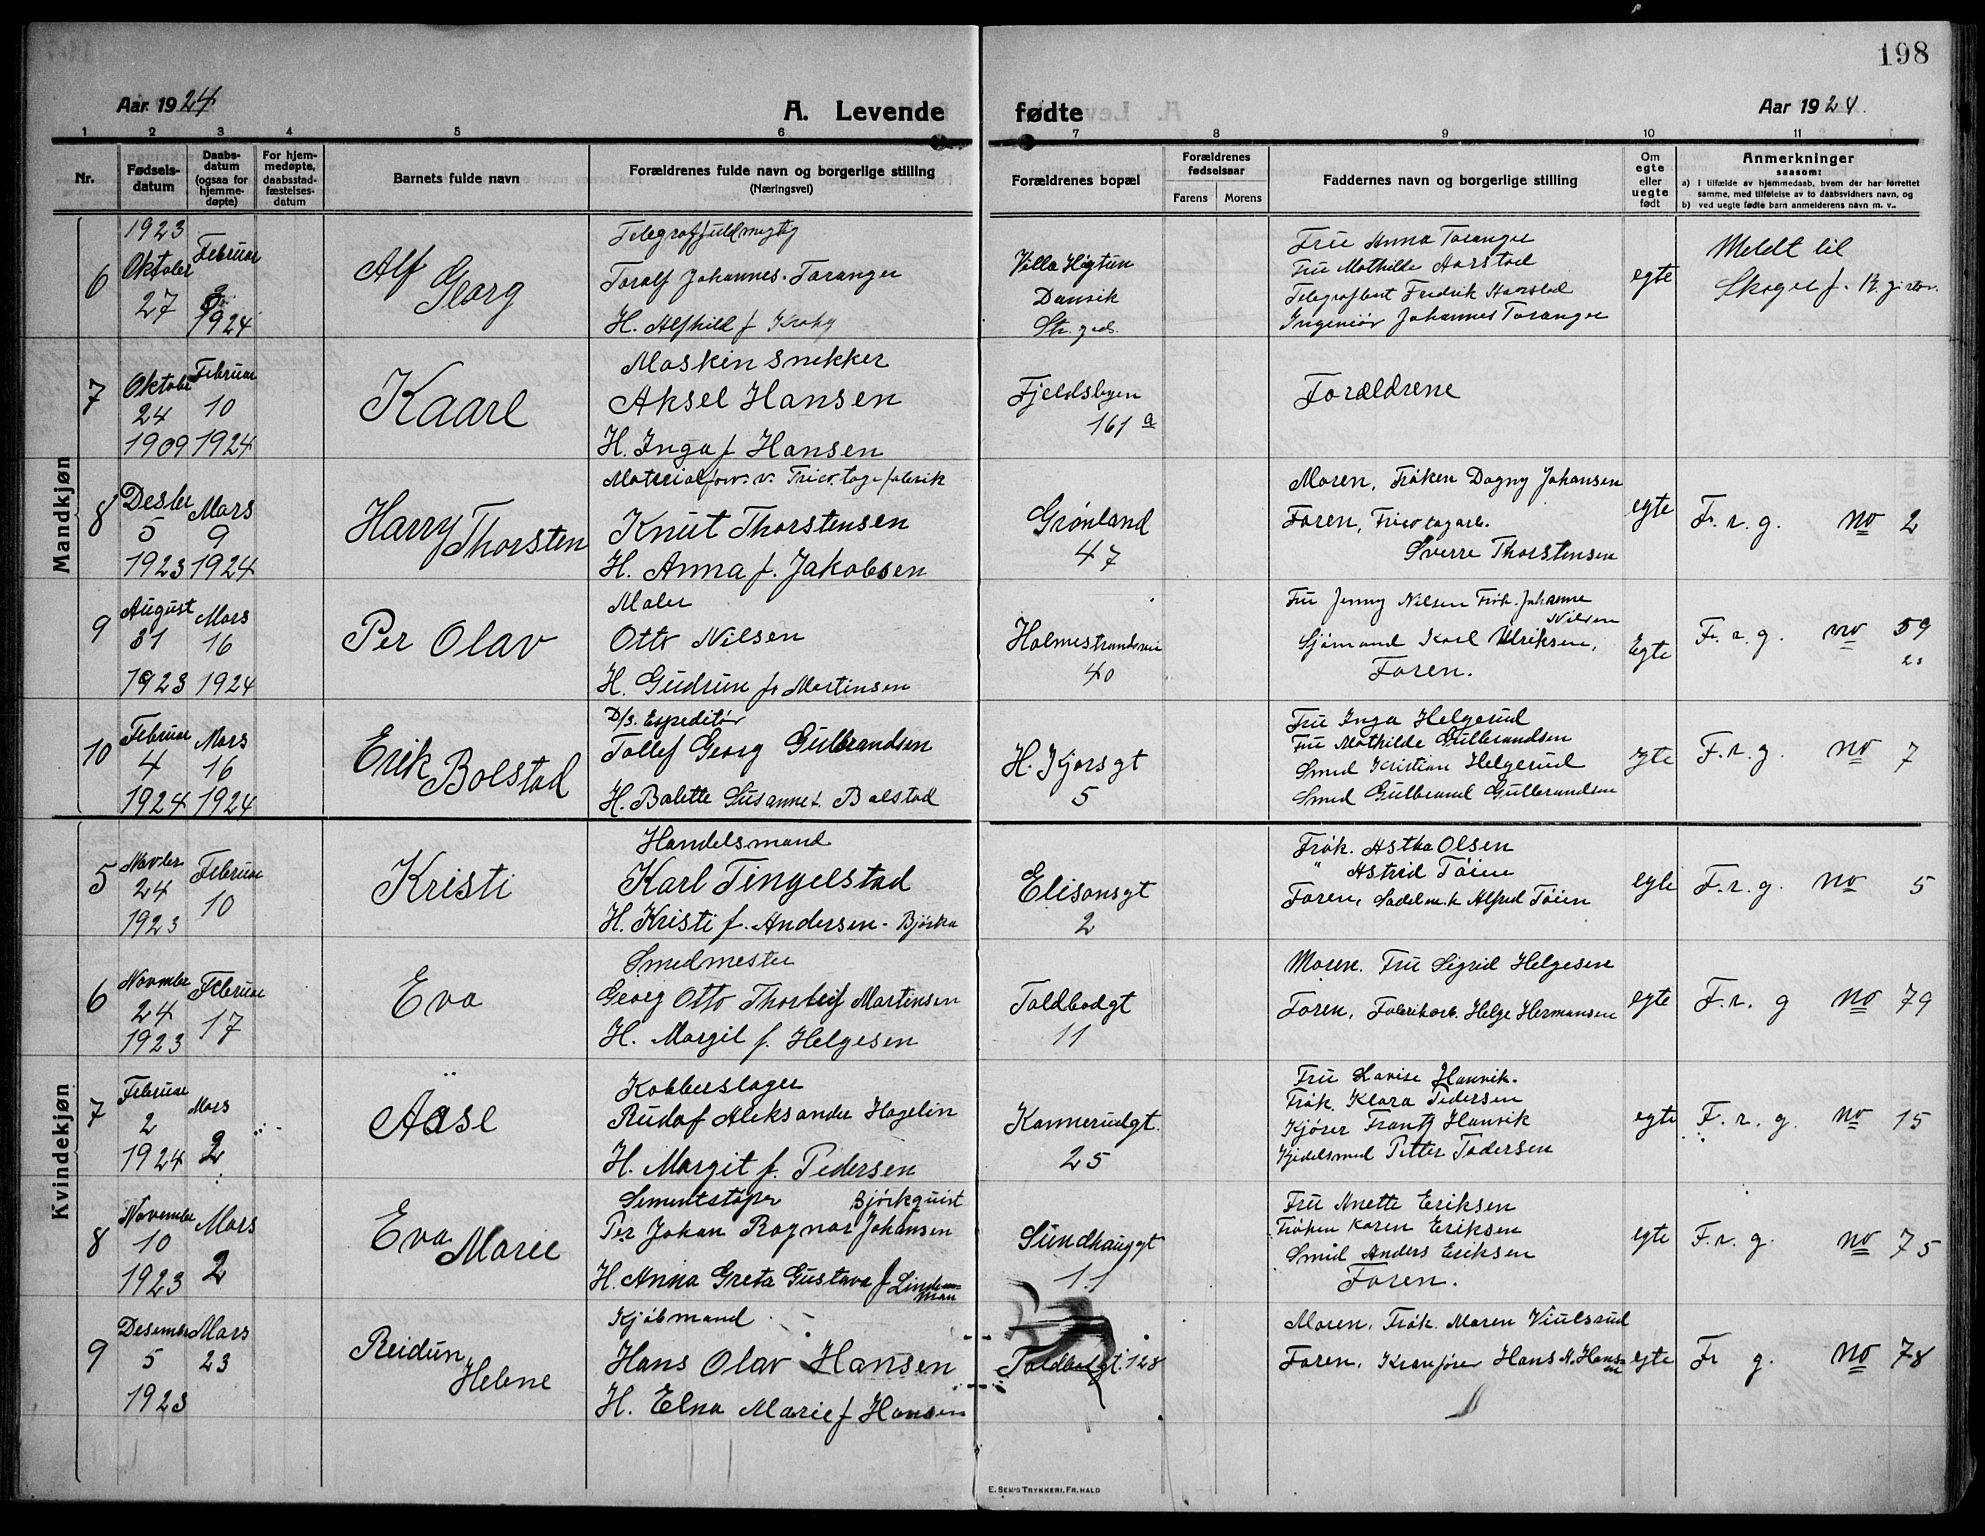 198
Aar 1924
A. Levende
fødte
Aar 1924.
1 2 3 4 5 6 7 8 9 10 11
Nr.
Fødsels-
datum
Daabs-
datum
(ogsaa for
hjemme-
døpte)
For hjem-
medøpte,
daabsstad-
fæstelses-
datum
Barnets fulde navn
Forældrenes fulde navn og borgerlige stilling
(Næringsvei)
Forældrenes bopæl
Forældrenes
fødselsaar
Farens Morens
Faddernes navn og borgerlige stilling
Om
egte
eller
uegte
født
Anmerkninger
saasom:
a) I tilfælde av hjemmedaab, hvem der har forrettet
samme, med tilføielse av to daabsvidners navn, og
b) ved uegte fødte barn anmelderens navn m. v.
Mandkjøn
6
1923
Oktober
27
Februar
3
1924
Alf
Georg
Telegraffuldmegtig
Toralf Johannes Taranger
H. Alfhild f. Krohg
Villa Høgtun
Danvik
Str. gods.
Fru Anna Taranger
Fru Mathilde Aarstad
Telegrafbest Fredrik Aarstad
Ingeniør Johannes Taranger
egte
Meldt til
Skoger f. R.
7
Oktober
24
1909
Februar
10
1924
Kaarl
Maskinsnekker
Aksel Hansen
H. Inga f Hansen
Fjeldsbyen
161 a
Forældrene
8
Desber
5
1923
Mars
9
1924
Harry
Thorsten
Materialforv. v. Tricotagefabrik
Knut Thorstensen
H. Anna f. Jakobsen
Grønland
47
Moren, Frøken Dagny Johansen
Faren, Tricotagarb.
Sverre Thorstensen
egte
F. r. g. no 2
9
August
31
1923
Mars
16
1924
Per Olav
Maler
Otto Nilsen
H. Gudrun f. Martinsen
Holmestrandsvei
40
Fru Jenny Nilsen Frøk. Johanne
Nilsen
Sjømand Karl Ulriksen,
Faren.
Egte
F. r. g. no 59
10
Februar
4
1924
Mars
16
1924
Erik
Bolstad
D/s. Espeditør
Tollef Georg Gulbrandsen
H. Balette Susanne f. Bolstad
H. Kjørsgt
5
Fru Inga Helgerud
Fru Mathilde Gulbrandsen
Smed Kristian Helgerud
Smed Gulbrand Gulbrandsen
egte
F. r. g. no 7
Kvindekjøn
5
Novber
24
1923
Februar
10
Kristi
Handelsmand
Karl Tingelstad
H. Kristi f. Andersen-Bjørka
Elisonsgt
2
Frøk. Astha Olsen
" Astrid Tøien
Faren, Sadelm. Alfred Tøien
egte
F. r. g. no 5
6
November
24
1923
Februar
17
Eva
Smedmester
Georg Otto Thorleif Martinsen
H. Margit f. Helgesen
Toldbodgt
11
Moren. Fru Sigrid Helgesen
Faren, Fabrikarb. Helge Hermansen
egte
F. r. g no 79
7
Februar
2
1924
Mars
2
Aase
Kobberslager
Rudolf Aleksander Hagelin
H. Margit f. Pedersen
Konnerudgt.
25
Fru Lovise Hanvik.
Frøk. Klara Pedersen
Kjører Frantz Hanvik
Kjedelsmed Petter Pedersen
egte
F. r. g. no 15
8
November
10
1923
Mars
2
Eva
Marie
Sementstøper Bjørkquist
Per Johan Ragnar Johansen
H. Anna Greta Gustava f Lindman
Sundhauggt
11
Fru Anette Eriksen
Frøken Karen Eriksen
Smed Anders Eriksen
Faren.
egte
F. r. g. no 75
9
Desember
5
1923
Mars
23
Reidun
Helene
Kjøbmand
Hans Olav Hansen
H. Elna Marie f Hansen
Toldbodgt. 128
Moren, Frøk. Maren Viulsrud
Faren, Kranfører Hans M. Hansen
egte
Fr g. no 78
E. SEM'S TRYKKERI, FR.HALD